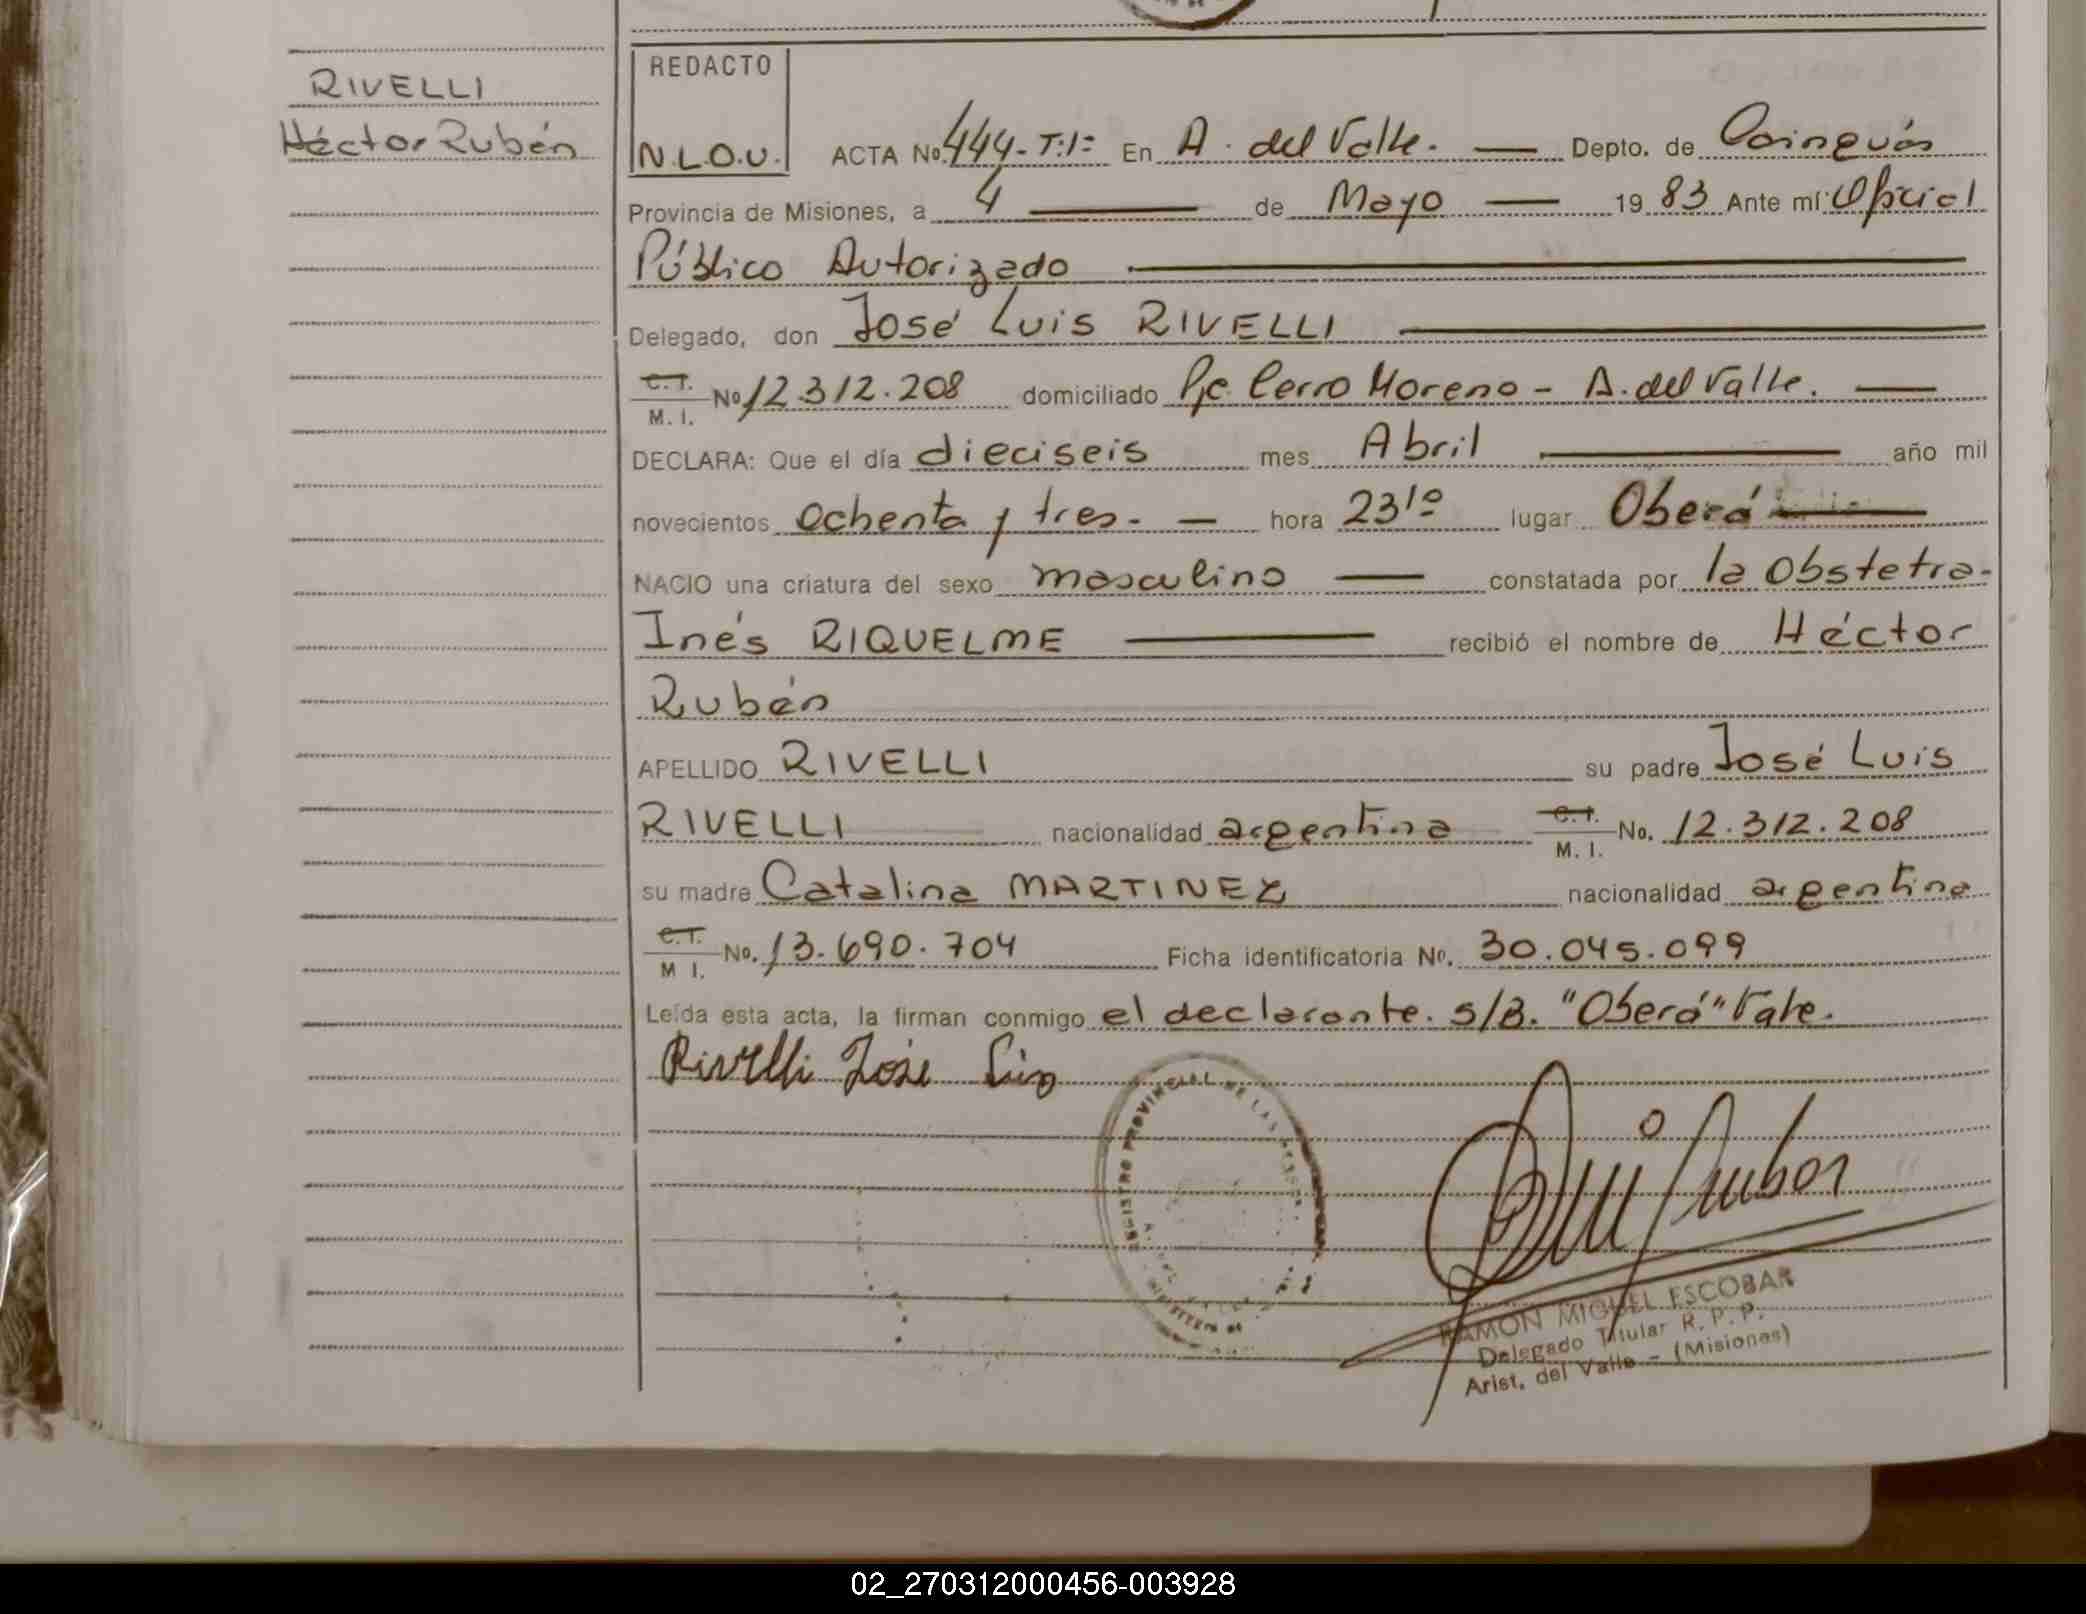 RIVELLI
Héctor Rubén
REDACTO
N.L.O.U.
ACTA No. 444-T:1º En A. del Valle. — Depto. de Cainguás
Provincia de Misiones, a 4 — de Mayo — 19 83 Ante mí: Oficial
Público Autorizado
Delegado, don José Luis RIVELLI
C.I. M. I. No 12.312.208 domiciliado Pje. Cerro Moreno - A. del Valle. —
DECLARA: Que el día dieciseis mes Abril — año mil
novecientos ochenta y tres. — hora 23¹⁰ lugar Oberá —
NACIO una criatura del sexo masculino — constatada por la Obstetra.
Inés RIQUELME — recibió el nombre de Héctor
Rubén
APELLIDO RIVELLI su padre José Luis
RIVELLI nacionalidad argentina C.I. M. I. No. 12.312.208
su madre Catalina MARTINEZ nacionalidad argentina
C.I. M I. No. 13.690.704 Ficha identificatoria No. 30.045.099
Leída esta acta, la firman conmigo el declarante. S/B. "Oberá" Vale.
Rivelli José Luis
REGISTRO PROVINCIAL DE LAS PERSONAS
RAMON MIGUEL ESCOBAR
Delegado Titular R. P. P.
Arist. del Valle - (Misiones)
02_270312000456-003928